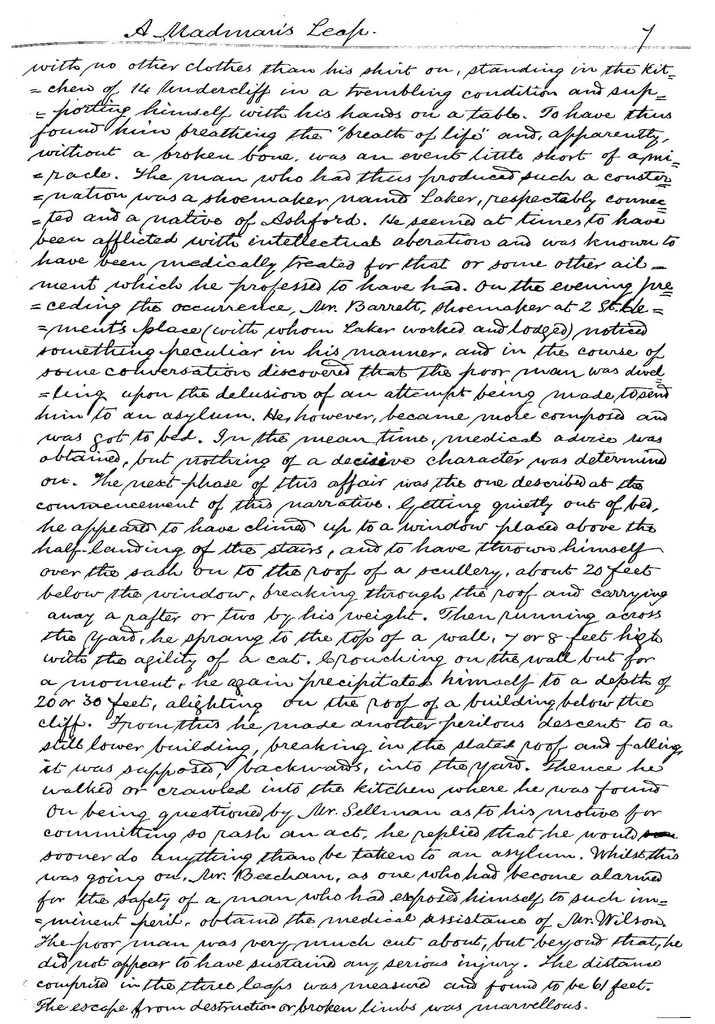 A Madman's Leap. 7
with no other clothes than his shirt on, standing in the kit-
=chen of 14 Undercliff in a trembling condition and sup-
=porting himself with his hands on a table. To have thus
found him breathing the "breath of life" and, apparently,
without a broken bone, was an event little short of a mi-
=racle. The man who had thus produced such a conster-
=nation was a shoemaker named Laker, respectably connec-
=ted and a native of Ashford. He seemed at times to have
been afflicted with intellectual aberation and was known to
have been medically treated for that or some other ail-
ment which he professed to have had. On the evening pre=
=ceding the occurrence, Mr. Barrett, shoemaker at 2 St. Cle=
=ment's place (with whom Laker worked and lodged) noticed
something peculiar in his manner, and in the course of
some conversation discovered that the poor man was dwel-
=ling upon the delusion of an attempt being made, to send
him to an asylum. He, however, became more composed and
was got to bed. In the mean time, medical advice was
obtained, but nothing of a decisive character was determined
on. The next phase of this affair was the one described at the
commencement of this narrative. Getting quietly out of bed,
he appeared to have climed up to a window placed above the
half-landing of the stairs, and to have thrown himself
over the sash on to the roof of a scullery, about 20 feet
below the window, breaking through the roof and carrying
away a rafter or two by his weight. Then running across
the yard, he sprang to the top of a wall, 7 or 8 feet high
with the agility of a cat. Crouching on the wall but for
a moment, he again precipitated himself to a depth of
20 or 30 feet, alighting on the roof of a building below the
cliff. From this he made another perilous descent to a
still lower building, breaking in the slated roof and falling,
it was supposed, backwards, into the yard. Thence he
walked or crawled into the kitchen where he was found
On being questioned by Mr. Sellman as to his motive for
committing so rash an act, he replied that he would
sooner do anything than be taken to an asylum. Whilst this
was going on, Mr. Beecham, as one who had become alarmed
for the safety of a man who had exposed himself to such im=
=minent peril, obtained the medical assistance of Mr. Wilson.
The poor man was very much cut about, but beyond that, he
did not appear to have sustaind any serious injury. The distance
comprised in the three leaps was measured and found to be 61 feet.
The escape from destruction or broken limbs was marvellous.